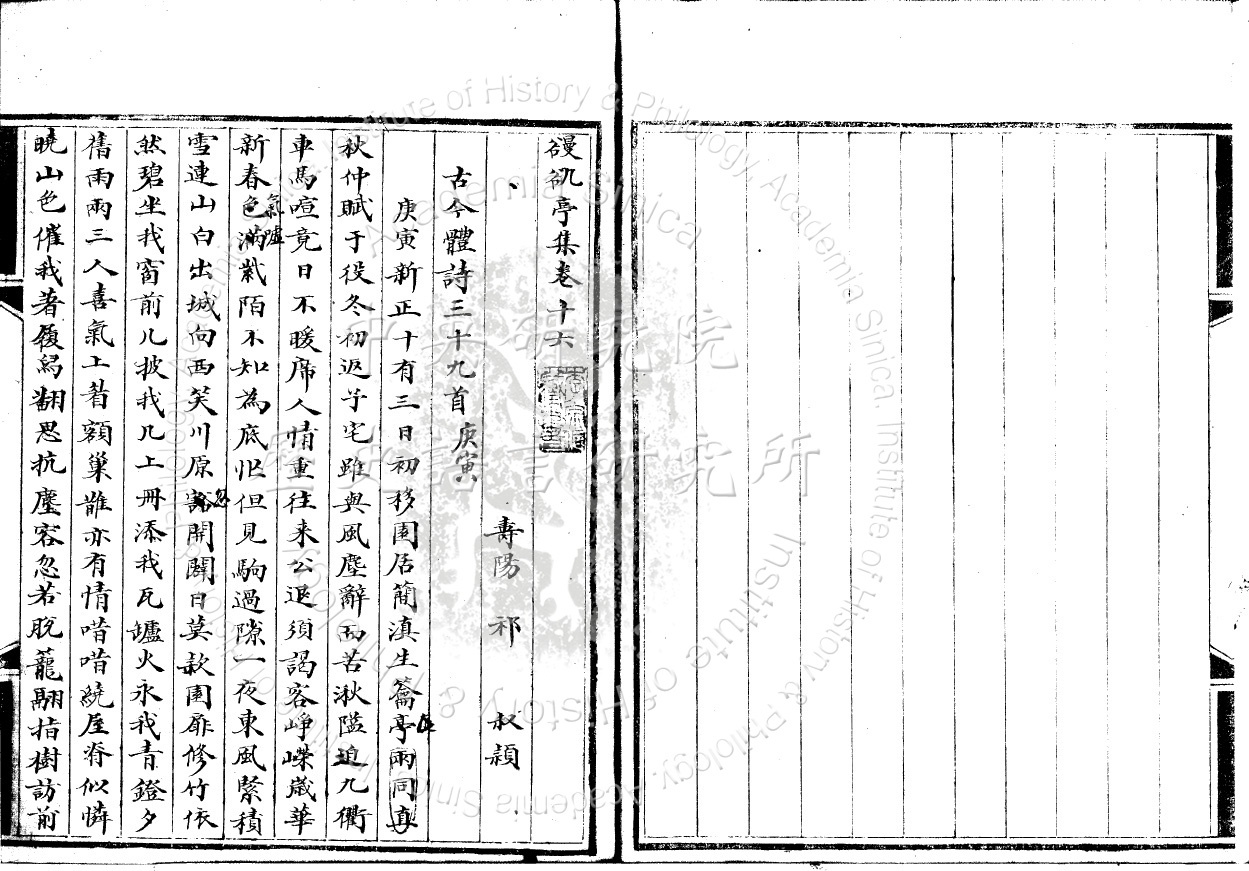 𥈭䂐亭集卷十六
壽陽 祁 叔穎
古今體詩三十九首 庚寅
庚寅新正十有三日初移園居簡滇生簹亭兩同直
秋仲賦于役冬初返予宅雖與風塵辭而苦湫隘迫九衢
車馬喧竟日不暖席人情重往来公退須謁客崢嶸歲華
新春色滿紫陌不知為底忙但見駒過隙一夜東風緊積
雪連山白出城向西笑川原豁開闢日莫款園扉修竹依
然碧坐我窗前几披我几上冊添我瓦罏火永我青鐙夕
舊雨兩三人喜氣上眉額巢鵲亦有情喈喈繞屋脊似憐
曉山色催我著履舄翻思抗塵容忽若脫籠翮指樹訪前
中央研究院
歷史語言研究所
Institute of History & Philology, Academia Sinica